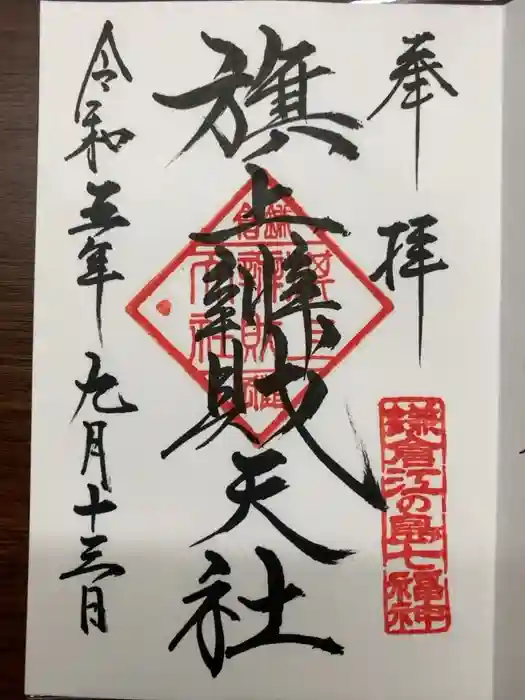 奉拝
鎌倉江の島七福神
旗上辨財天社
令和五年九月十三日